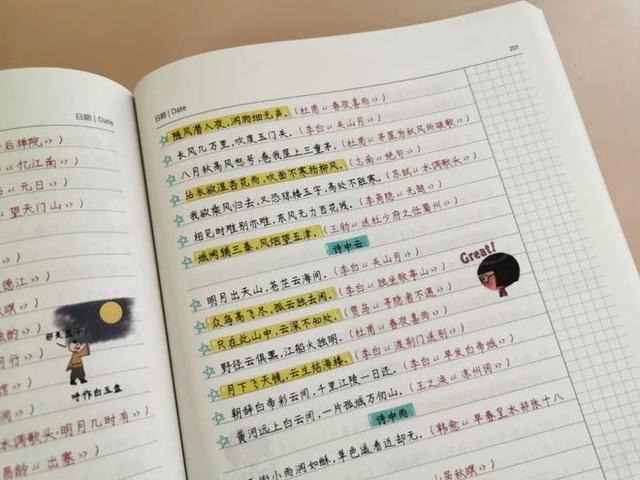 日期 | Date
后禅院》)
《忆江南》)
《元日》)
《望天门山》)
水调歌头·明月几时有》)
昌龄《出塞》)
呼作白玉盘
201
日期 | Date
随风潜入夜,润物细无声。(杜甫《春夜喜雨》)
长风几万里,吹度玉门关。(李白《关山月》)
八月秋高风怒号,卷我屋上三重茅。(杜甫《茅屋为秋风所破歌》)
沾衣欲湿杏花雨,吹面不寒杨柳风。(志南《绝句》)
我欲乘风归去,又恐琼楼玉宇,高处不胜寒。(苏轼《水调歌头》)
相见时难别亦难,东风无力百花残。(李商隐《无题》)
城阙辅三秦,风烟望五津。(王勃《送杜少府之任蜀州》)
诗中云
明月出天山,苍茫云海间。(李白《关山月》)
众鸟高飞尽,孤云独去闲。(李白《独坐敬亭山》)
只在此山中,云深不知处。(贾岛《寻隐者不遇》)
野径云俱黑,江船火独明。(杜甫《春夜喜雨》)
月下飞天镜,云生结海楼。(李白《渡荆门送别》)
朝辞白帝彩云间,千里江陵一日还。(李白《早发白帝城》)
黄河远上白云间,一片孤城万仞山。(王之涣《凉州词》)
诗中雨
街小雨润如酥,草色遥看近却无。(韩愈《早春呈水部张十八
居秋暝》)
Great!